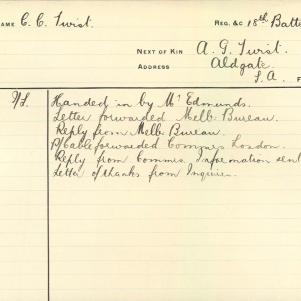 NAME C. C. Twist. REG. &C 18th Batt
NEXT OF KIN A. G. Twist.
ADDRESS Aldgate.
S. A.
Handed in by Mr Edmunds.
Letter forwarded Melb. Bureau.
Reply from Melb. Bureau.
P/Cable forwarded Commrs London.
Reply from Commrs. Information sent
Letter of thanks from Inquirer.